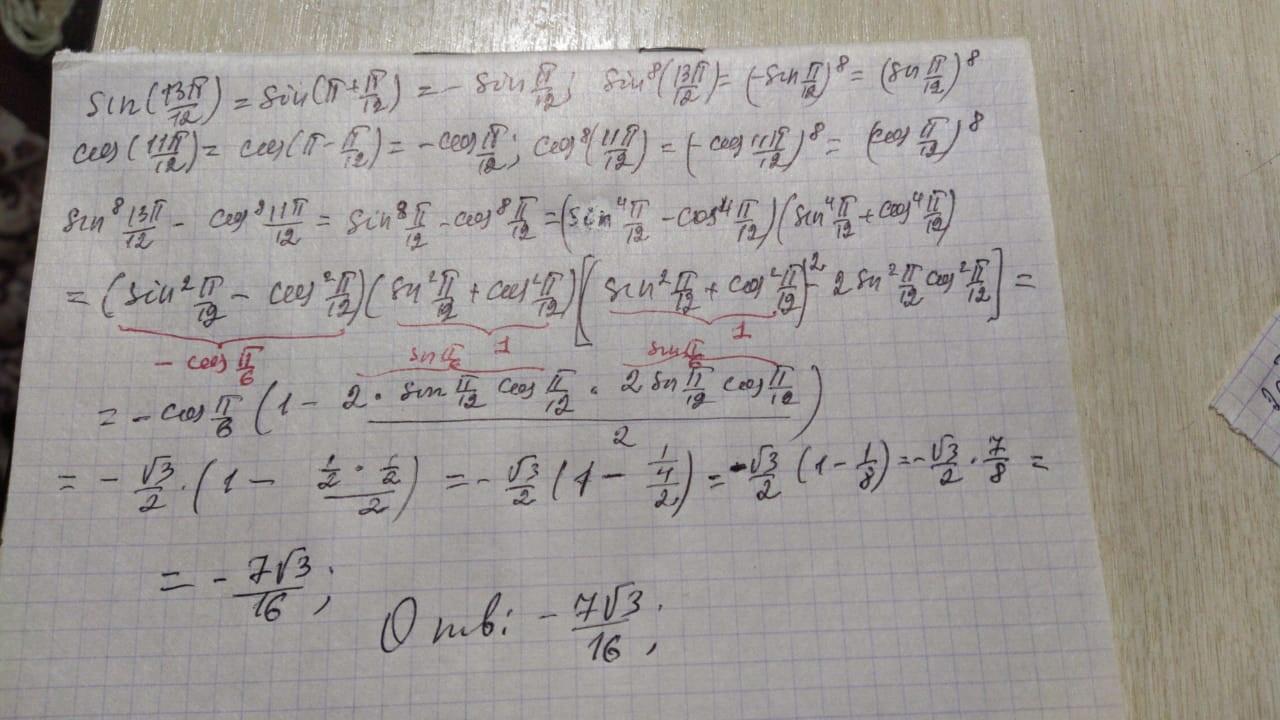 sin(13π/12) = sin(π+π/12) = - sin π/12; sin⁸(13π/12) = (-sin π/12)⁸ = (sin π/12)⁸
cos(11π/12) = cos(π-π/12) = -cos π/12; cos⁸(11π/12) = (-cos 11π/12)⁸ = (cos π/12)⁸
sin⁸ 13π/12 - cos⁸ 11π/12 = sin⁸ π/12 - cos⁸ π/12 = (sin⁴ π/12 - cos⁴ π/12)(sin⁴ π/12 + cos⁴ π/12)
= (sin² π/12 - cos² π/12)(sin² π/12 + cos² π/12)[(sin² π/12 + cos² π/12)² - 2 sin² π/12 cos² π/12] =
- cos π/6 1 1
sin π/6 sin π/6
= - cos π/6 (1 - 2 · sin π/12 cos π/12 · 2 sin π/12 cos π/12 / 2)
= - √3/2 · (1 - 1/2 · 1/2 / 2) = - √3/2 (1 - 1/4 / 2) = - √3/2 (1 - 1/8) = - √3/2 · 7/8 =
= - 7√3/16;
Отв: - 7√3/16;